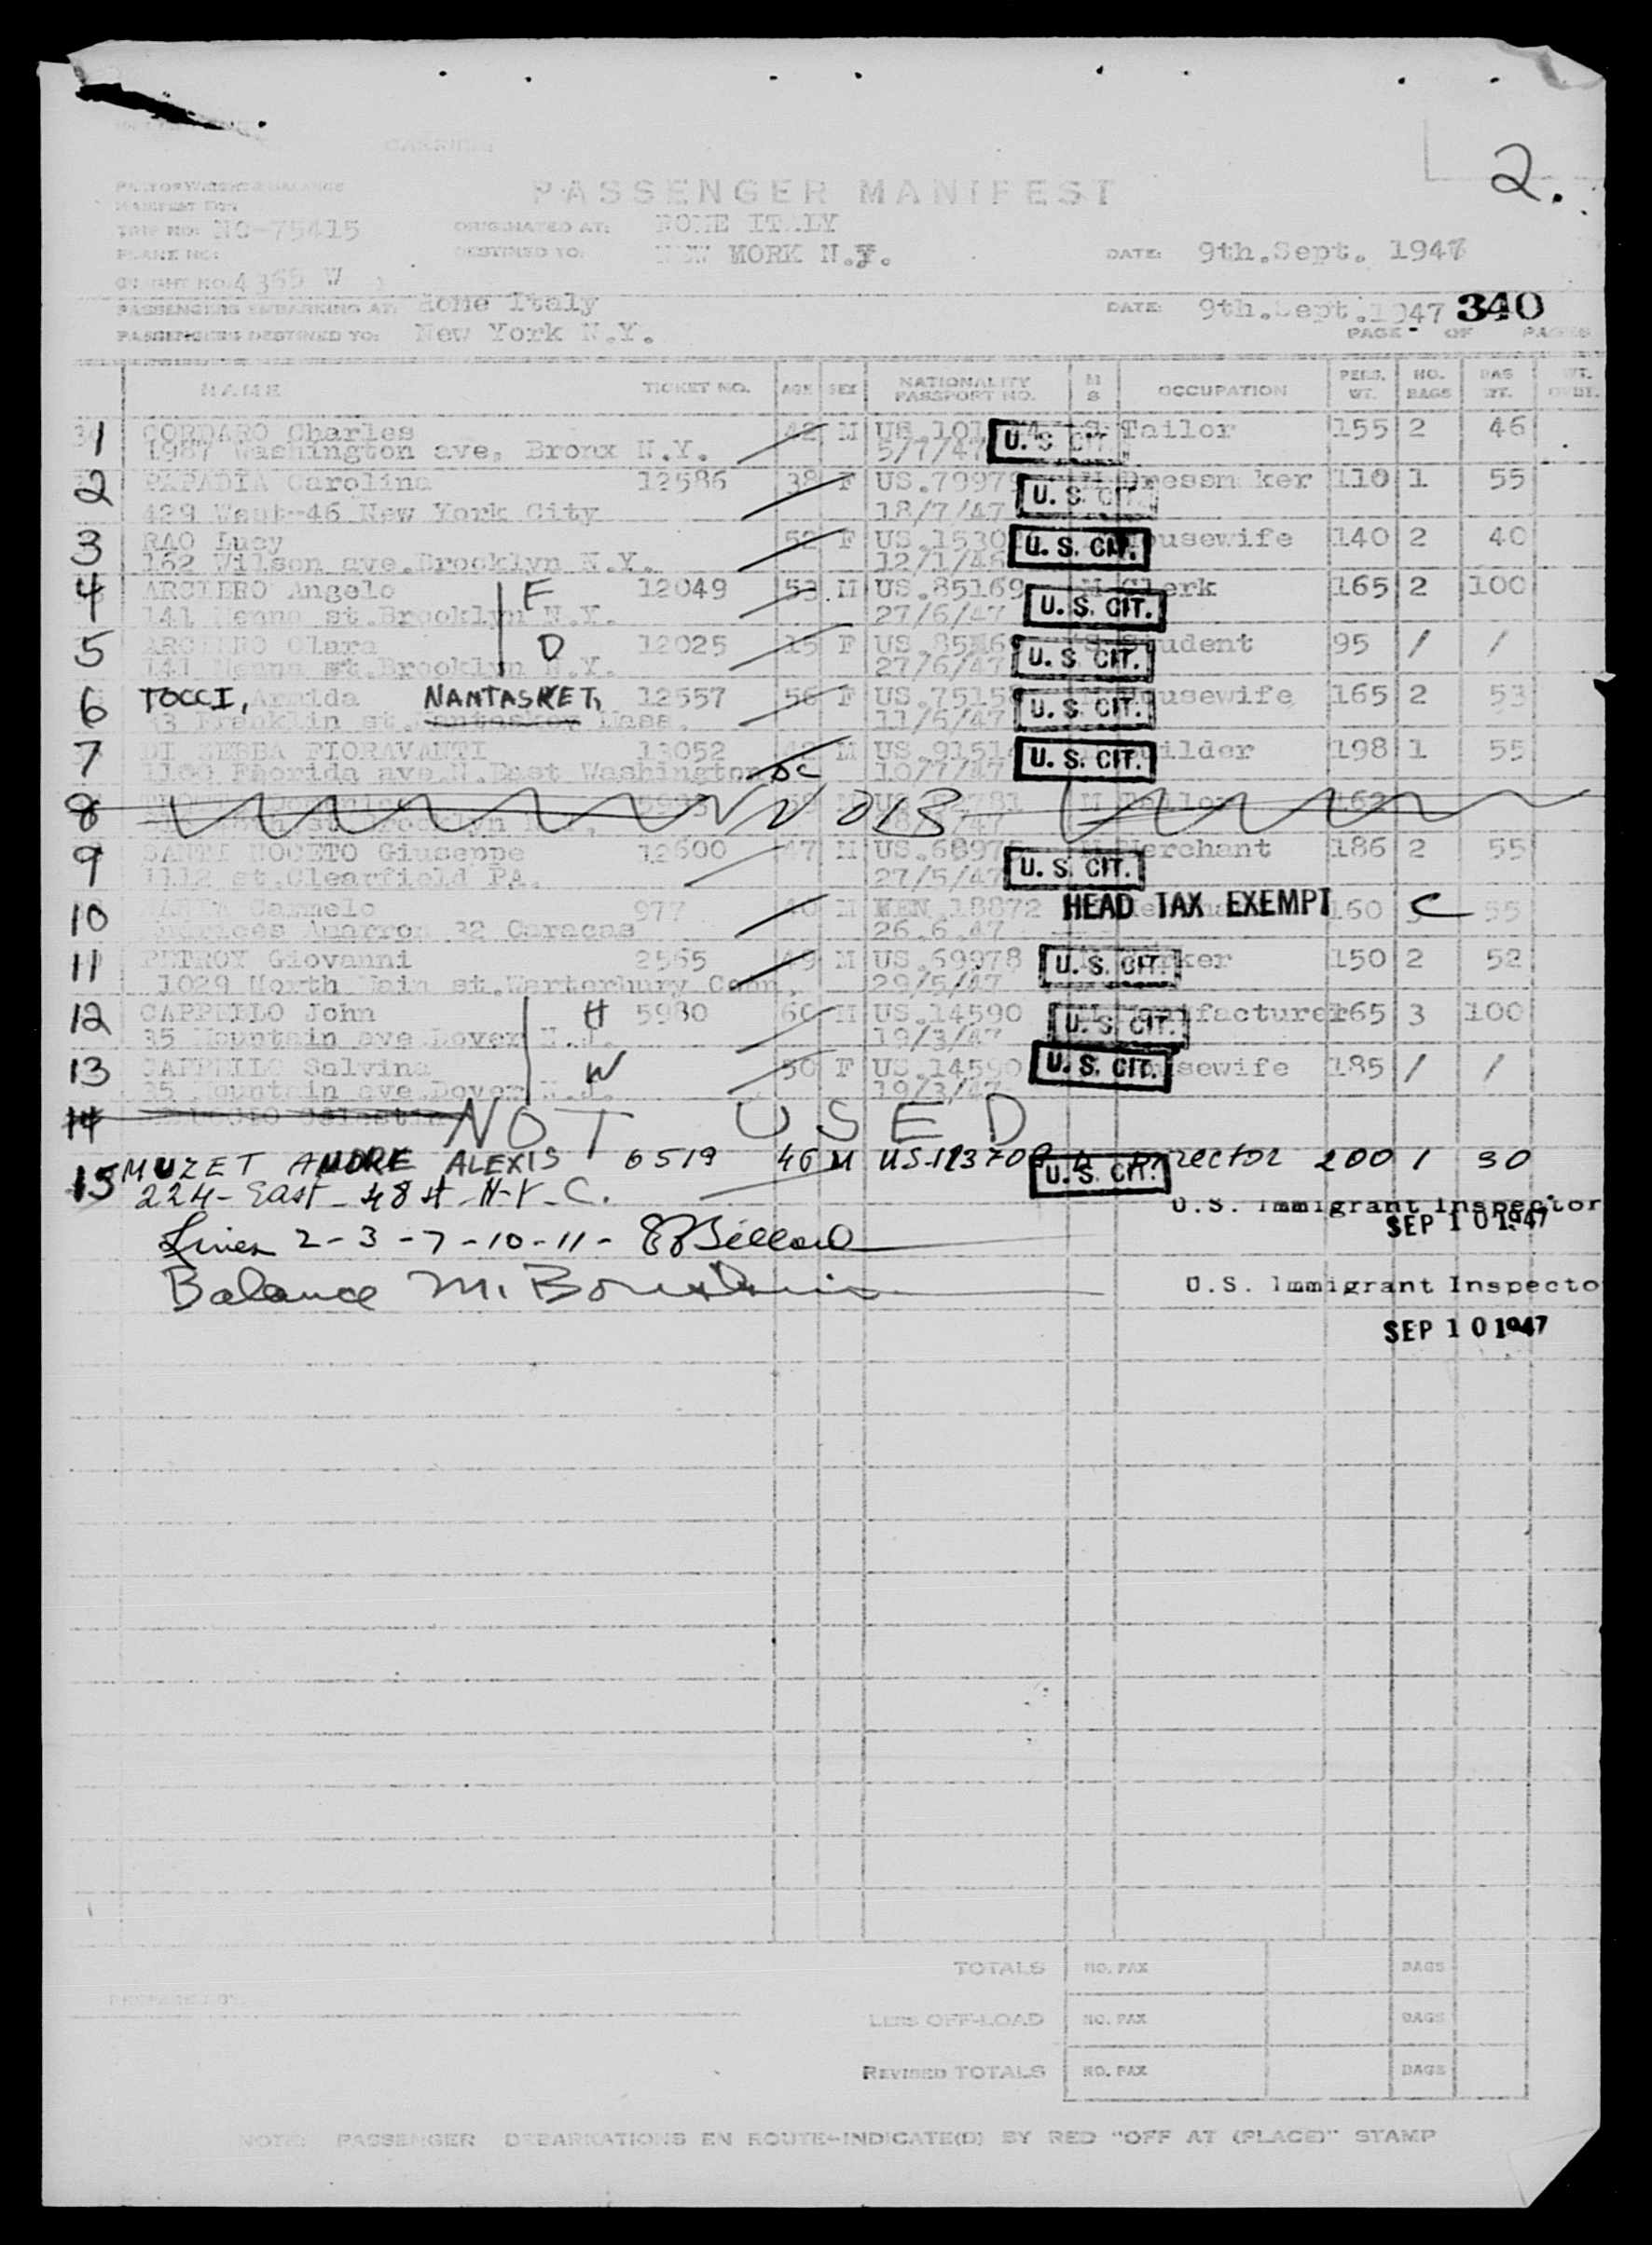 2.
PASSENGER MANIFEST
MANIFEST FOR
TRIP NO: NC-75415 ORIGINATED AT: ROME ITALY
PLANE NO: DESTINED TO: NEW MORK N.Y. DATE: 9th.Sept. 1947
4365 W
PASSENGERS EMBARKING AT: Rome Italy DATE: 9th.Sept.1947 340
PASSENGERS DESTINED TO: New York N.Y. PAGE - OF PAGES
NAME TICKET NO. AGE SEX NATIONALITY PASSPORT NO. M S OCCUPATION PERS. WT. NO. BAGS BAG WT.
1 CORDARO Charles 42 M US S Tailor 155 2 46
1987 Washington ave. Bronx N.Y. 5/7/47 U. S. CIT.
2 PAPADIA Carolina 12586 38 F US.7997 ker 110 1 55
429 West-46 New York City 18/7/47 U. S. CIT.
3 RAO Lucy 52 F US.1530 U. S. CIT. ousewife 140 2 40
162 Wilson ave.Brooklyn N.Y. 12/1/46
4 ARCIERO Angelo F 12049 53 M US.85169 M Clerk 165 2 100
141 st.Brooklyn N.Y. 27/6/47 U. S. CIT.
5 Clara D 12025 15 F S Student 95 / /
141 st.Brooklyn N.Y. 27/6/47 U. S. CIT.
6 TOCCI, Armida NANTASKET, 12557 56 F US.7515 ousewife 165 2 53
Franklin st. Mass. 11/5/47 U. S. CIT.
7 DI FIORAVANTI 13052 42 M US.9151 uilder 198 1 55
1160 Fhorida ave.N.East Washington DC 10/7/47 U. S. CIT.
8 NOB
9 SANTI NOCETO Giuseppe 12600 47 M US.6897 Merchant 186 2 55
1112 st.Clearfield PA. 27/5/47 U. S. CIT.
10 Carmelo 977 40 M VEN.18872 HEAD TAX EXEMPT 160 C 55
32 Caracas 26.6.47
11 PETROY Giovanni 2565 49 M US.69978 U. S. CIT. 150 2 52
1029 North Main st.Warterbury Conn. 29/5/47
12 CAPPELLO John H 5980 60 M US.14590 U. S. CIT. 165 3 100
35 Mountain ave.Dover N.J. 19/3/47
13 CAPPELLO Salvina W 50 F US.14590 U. S. CIT. sewife 185 / /
35 Mountain ave.Dover N.J. 19/3/47
14 NOT USED
15 MUZET ANDRE ALEXIS 6519 46 M US-123709 U. S. CIT. Director 200 1 30
224 - East - 48 st - N-Y - C.
U.S. Immigrant Inspector
SEP 10 1947
Lines 2 - 3 - 7 - 10 - 11 -
Balance M.
U.S. Immigrant Inspecto
SEP 10 1947
TOTALS NO. PAX BAGS
LESS OFF-LOAD NO. PAX BAGS
REVISED TOTALS NO. PAX BAGS
NOTE: PASSENGER DEBARKATIONS EN ROUTE-INDICATE(D) BY RED "OFF AT (PLACE)" STAMP